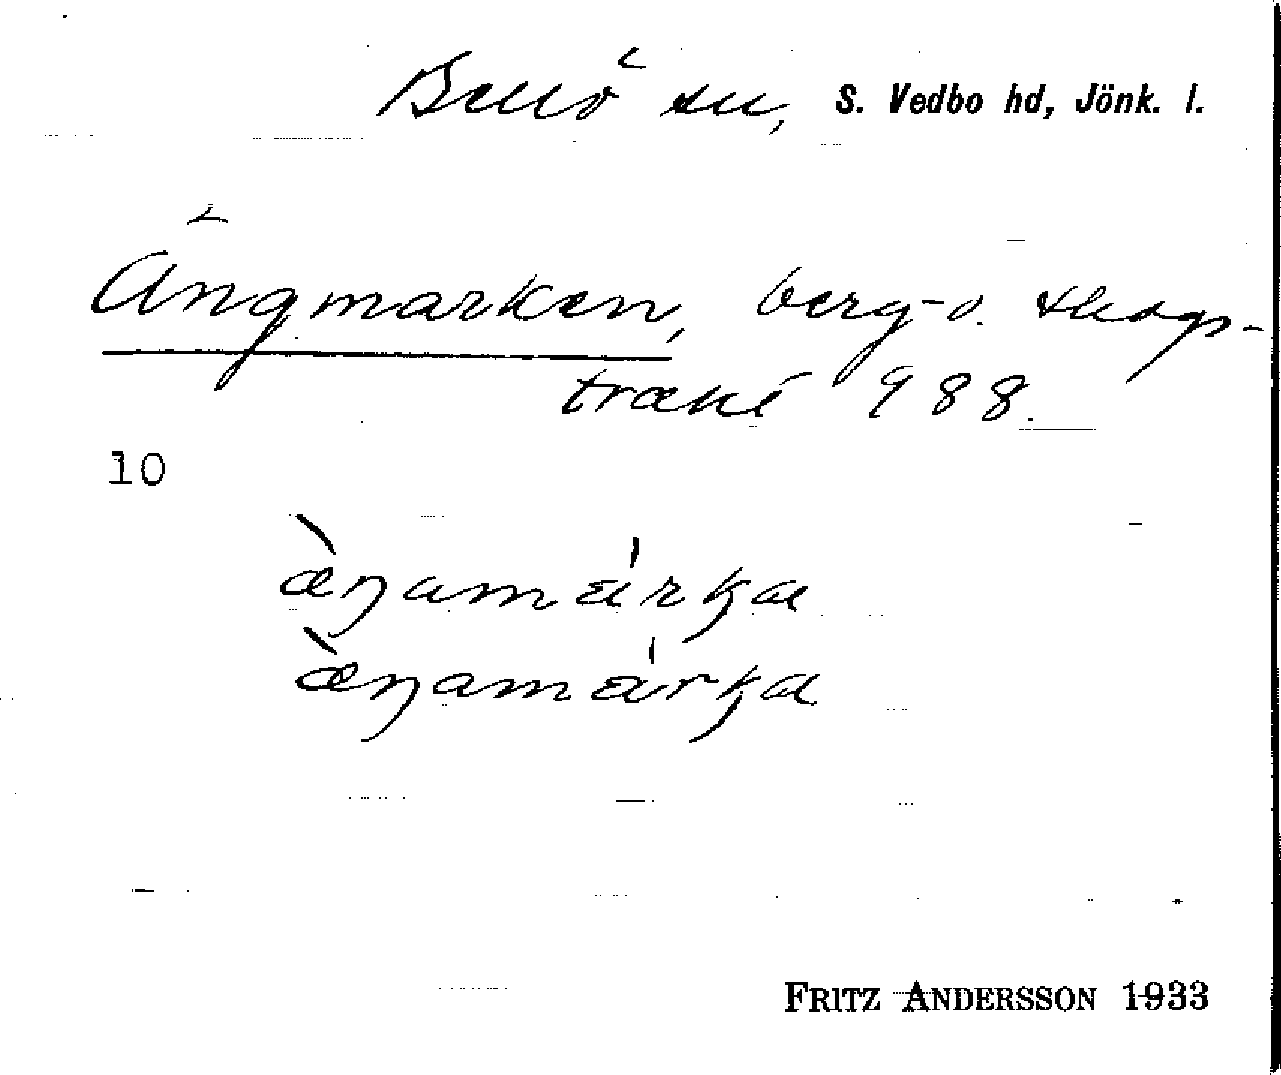 Bellö sn, S. Vedbo hd, Jönk. l.
Ängmarken, berg- o. skogs-
trakt 988.
10
æ̀ŋamárka
æ̀ŋamárka
FRITZ ANDERSSON 1933